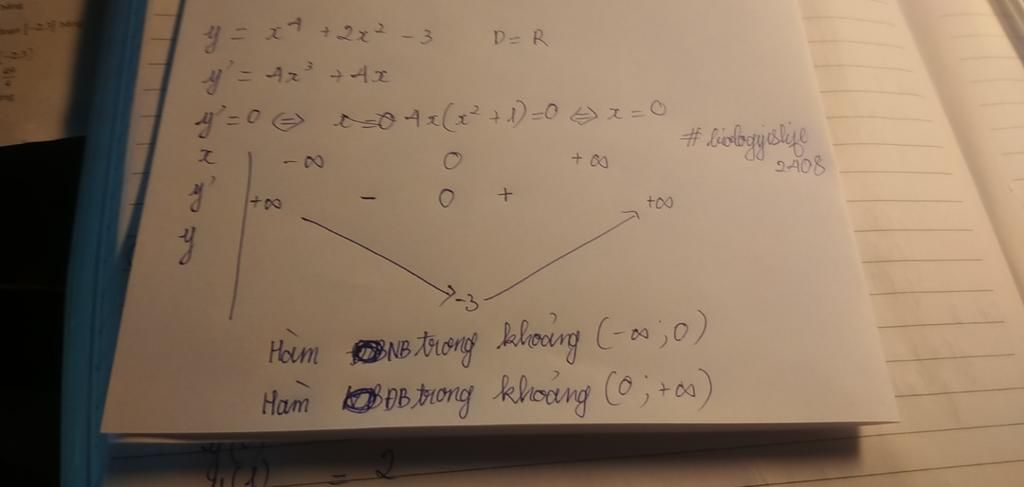 y = x⁴ + 2x² - 3 D = R
y' = 4x³ + 4x
y' = 0 ⇔ 4x(x² + 1) = 0 ⇔ x = 0
#biologyislife
2408
x -∞ 0 +∞
y' - 0 +
y +∞ -3 +∞
Hàm NB trong khoảng (-∞; 0)
Hàm ĐB trong khoảng (0; +∞)
= 2